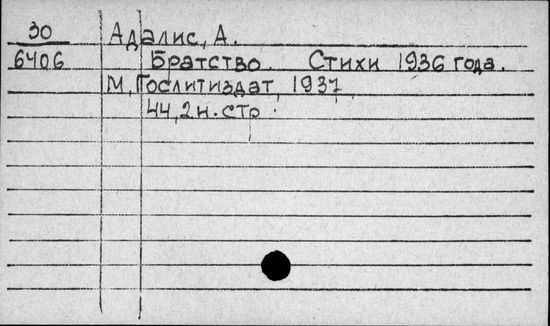 30 Адалис, А.
6406 Братство. Стихи 1936 года.
М, Гослитиздат, 1937
44, 2 н. стр.